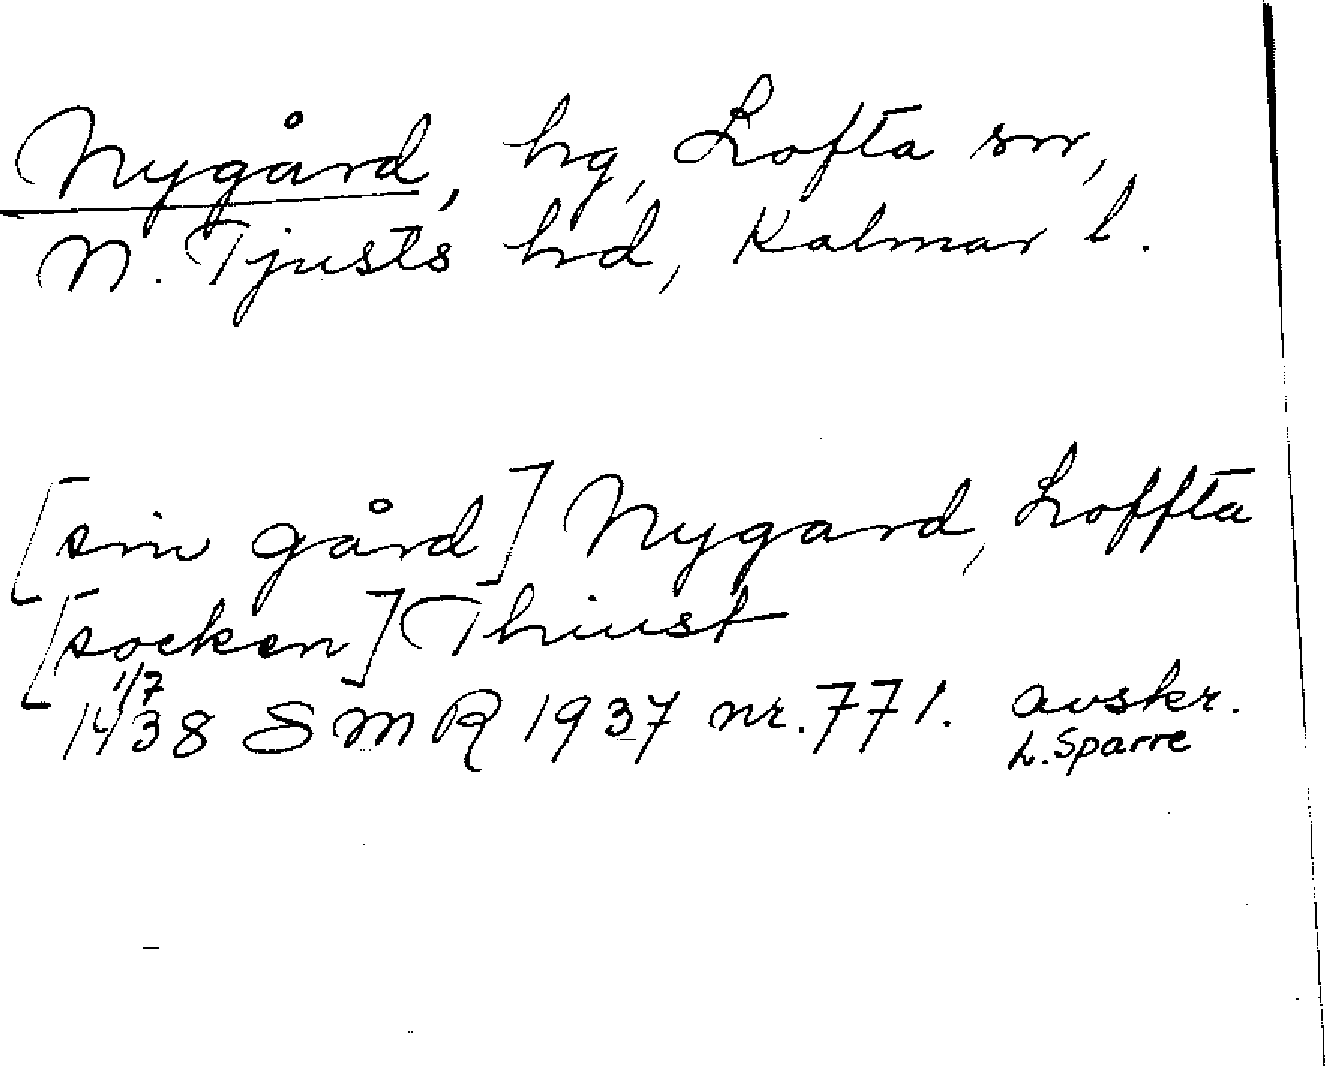 Nygård, hg, Lofta sn,
N. Tjusts hd, Kalmar l.
[sin gård] Nygard, Loffta
[socken] Thiust
1/7
1438 SMR 1937 nr. 771. avskr.
L. Sparre